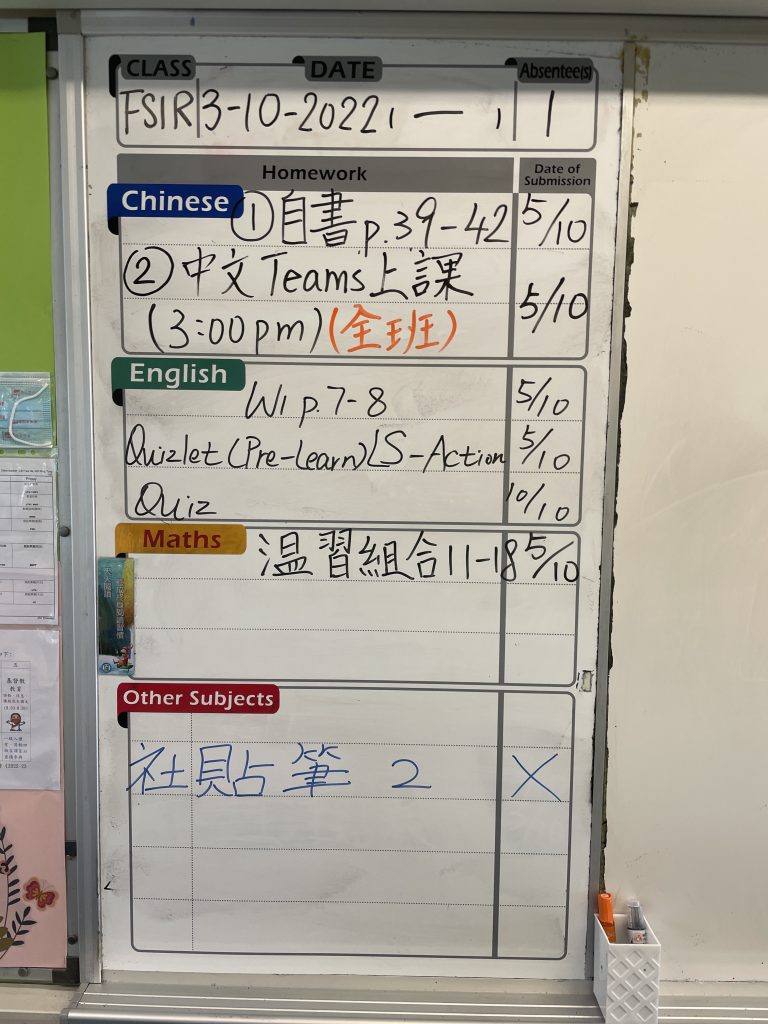 CLASS DATE Absentee(s)
FSIR 3-10-2022 ( 一 ) 1
Homework Date of Submission
Chinese ① 自書 p.39-42 5/10
② 中文 Teams 上課
(3:00pm) (全班) 5/10
English
W1 p.7-8 5/10
Quizlet (Pre-Learn) LS-Action 5/10
Quiz 10/10
Maths 温習組合 11-18 5/10
Other Subjects
社貼筆 2 X
基督教
教育